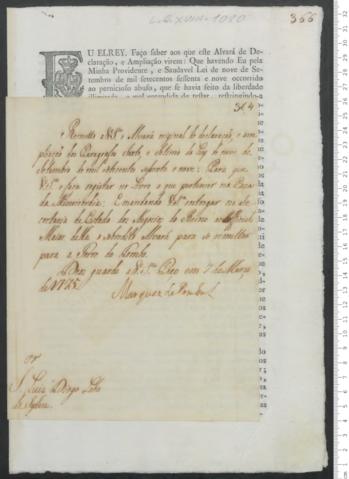 366
EU ELREY. Faço saber aos que este Alvará de De-
claração, e Ampliação virem: Que havendo Eu pela
Minha Providente, e Saudavel Lei de nove de Se-
tembro de mil setecentos sessenta e nove occorrido
ao pernicioso abuso, que se havia feito da liberdade
364
Remetto a V.S.ª o Alvará original de declaração, e am-
pliação dos Paragrafos e Setimo da Ley de nove de
Setembro de mil setecentos sessenta e nove: Para que
V.S.ª o faça registar no Livro a que pertencer na Caza
da Misericordia: E mandando V.S.ª entregar na Se-
cretaria de Estado dos Negocios do Reino
Maior della o sobredito Alvará, para se remetter
para a Torre do Tombo.
Deos guarde a V.S.ª Paço em 7 de Março
de 1775.
Marquez de Pombal
S.r Luiz Diogo Lobo
da Sylva.